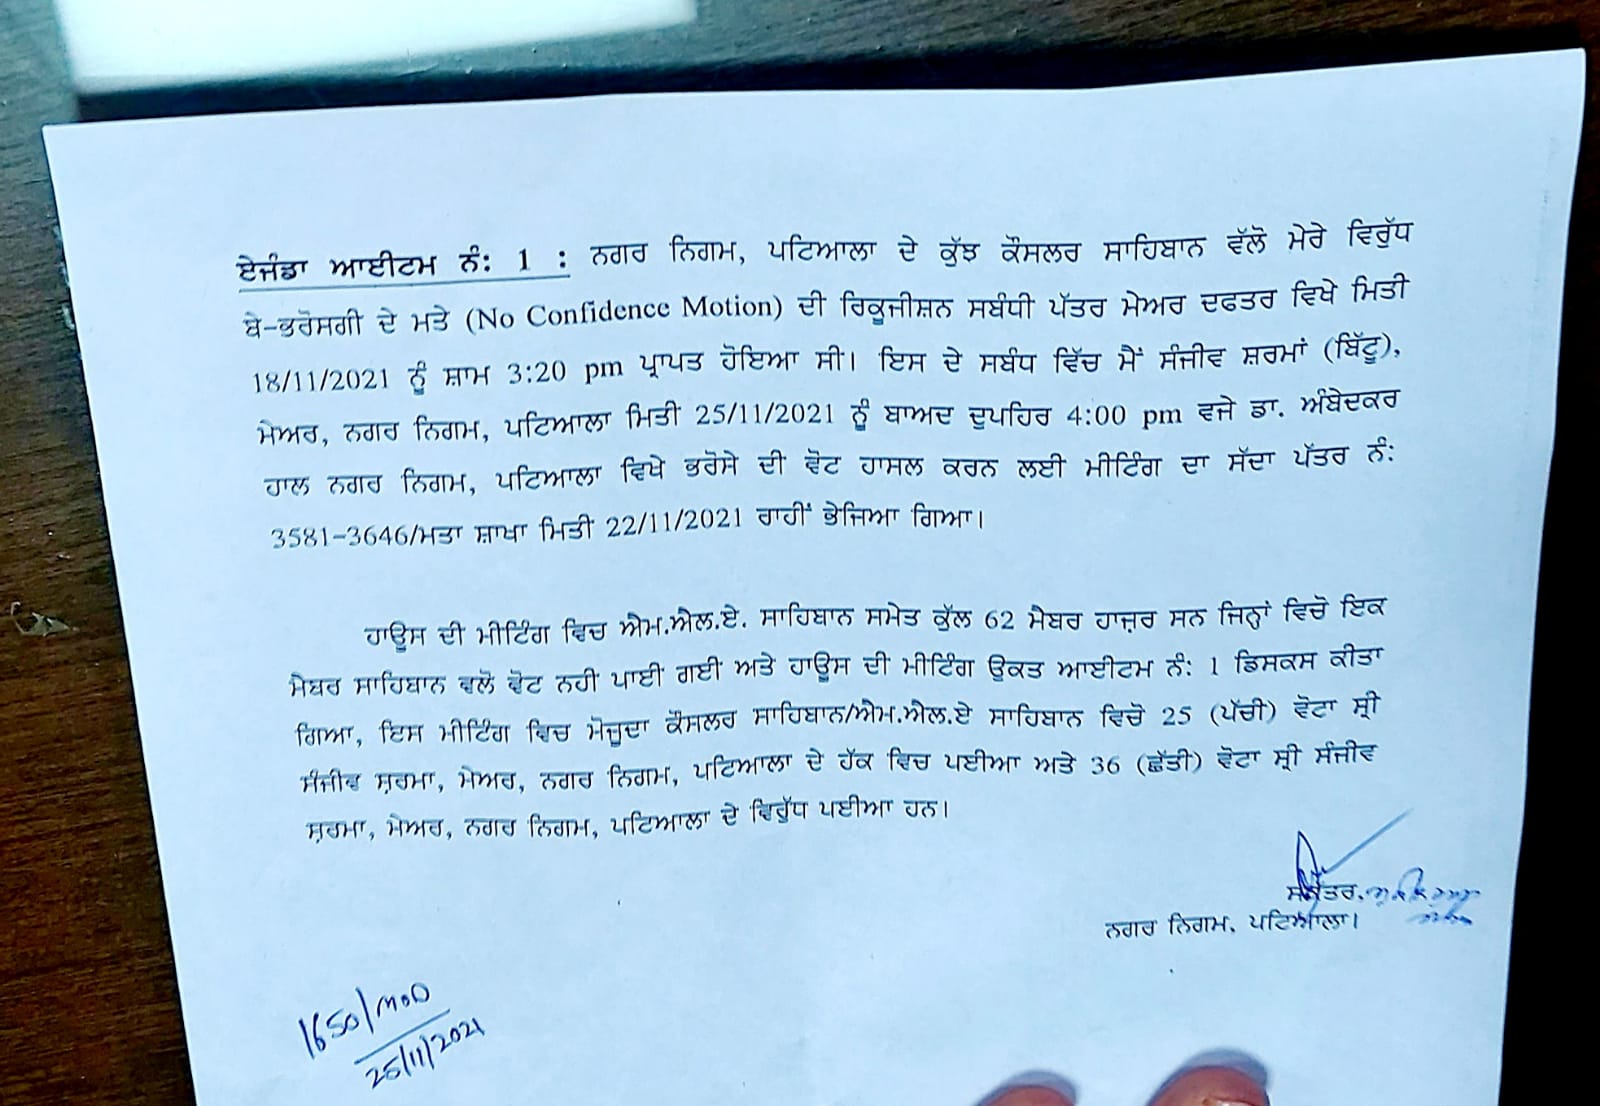 ਏਜੰਡਾ ਆਈਟਮ ਨੰ: 1 : ਨਗਰ ਨਿਗਮ, ਪਟਿਆਲਾ ਦੇ ਕੁੱਝ ਕੌਂਸਲਰ ਸਾਹਿਬਾਨ ਵੱਲੋ ਮੇਰੇ ਵਿਰੁੱਧ
ਬੇ-ਭਰੋਸਗੀ ਦੇ ਮਤੇ (No Confidence Motion) ਦੀ ਰਿਕੂਜੀਸ਼ਨ ਸਬੰਧੀ ਪੱਤਰ ਮੇਅਰ ਦਫਤਰ ਵਿਖੇ ਮਿਤੀ
18/11/2021 ਨੂੰ ਸ਼ਾਮ 3:20 pm ਪ੍ਰਾਪਤ ਹੋਇਆ ਸੀ। ਇਸ ਦੇ ਸਬੰਧ ਵਿੱਚ ਮੈਂ ਸੰਜੀਵ ਸ਼ਰਮਾਂ (ਬਿੱਟੂ),
ਮੇਅਰ, ਨਗਰ ਨਿਗਮ, ਪਟਿਆਲਾ ਮਿਤੀ 25/11/2021 ਨੂੰ ਬਾਅਦ ਦੁਪਹਿਰ 4:00 pm ਵਜੇ ਡਾ. ਅੰਬੇਦਕਰ
ਹਾਲ ਨਗਰ ਨਿਗਮ, ਪਟਿਆਲਾ ਵਿਖੇ ਭਰੋਸੇ ਦੀ ਵੋਟ ਹਾਸਲ ਕਰਨ ਲਈ ਮੀਟਿੰਗ ਦਾ ਸੱਦਾ ਪੱਤਰ ਨੰ:
3581-3646/ਮਤਾ ਸ਼ਾਖਾ ਮਿਤੀ 22/11/2021 ਰਾਹੀਂ ਭੇਜਿਆ ਗਿਆ।
ਹਾਊਸ ਦੀ ਮੀਟਿੰਗ ਵਿਚ ਐਮ.ਐਲ.ਏ. ਸਾਹਿਬਾਨ ਸਮੇਤ ਕੁੱਲ 62 ਮੈਬਰ ਹਾਜ਼ਰ ਸਨ ਜਿਨ੍ਹਾਂ ਵਿਚੋ ਇਕ
ਮੈਬਰ ਸਾਹਿਬਾਨ ਵਲੋ ਵੋਟ ਨਹੀ ਪਾਈ ਗਈ ਅਤੇ ਹਾਊਸ ਦੀ ਮੀਟਿੰਗ ਉਕਤ ਆਈਟਮ ਨੰ: 1 ਡਿਸਕਸ ਕੀਤਾ
ਗਿਆ, ਇਸ ਮੀਟਿੰਗ ਵਿਚ ਮੋਜੂਦਾ ਕੌਂਸਲਰ ਸਾਹਿਬਾਨ/ਐਮ.ਐਲ.ਏ ਸਾਹਿਬਾਨ ਵਿਚੋ 25 (ਪੱਚੀ) ਵੋਟਾ ਸ਼੍ਰੀ
ਸੰਜੀਵ ਸ਼ਰਮਾ, ਮੇਅਰ, ਨਗਰ ਨਿਗਮ, ਪਟਿਆਲਾ ਦੇ ਹੱਕ ਵਿਚ ਪਈਆ ਅਤੇ 36 (ਛੱਤੀ) ਵੋਟਾ ਸ਼੍ਰੀ ਸੰਜੀਵ
ਸ਼ਰਮਾ, ਮੇਅਰ, ਨਗਰ ਨਿਗਮ, ਪਟਿਆਲਾ ਦੇ ਵਿਰੁੱਧ ਪਈਆ ਹਨ।
ਸਕੱਤਰ,
ਨਗਰ ਨਿਗਮ, ਪਟਿਆਲਾ।
1650/MOD
25/11/2021